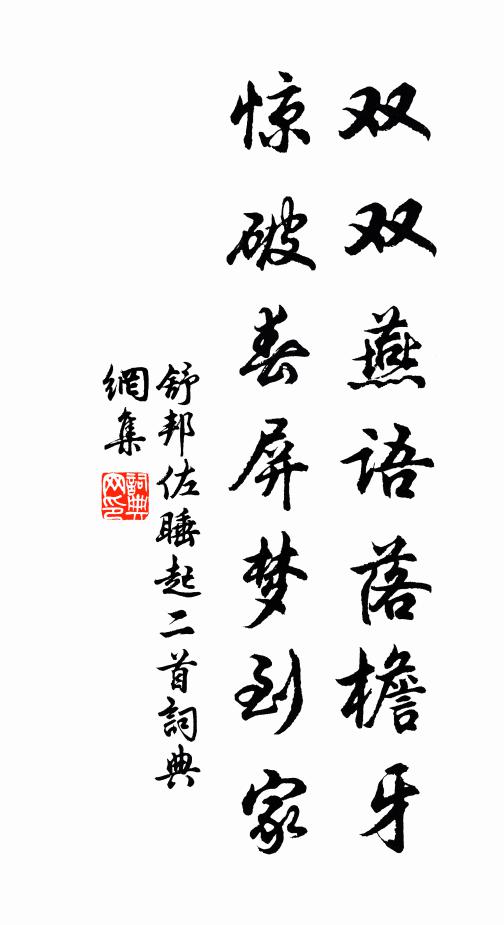 双双燕语落檐牙
惊破春屏梦到家
舒邦佐睡起二首詞典
網集
詞典
网印